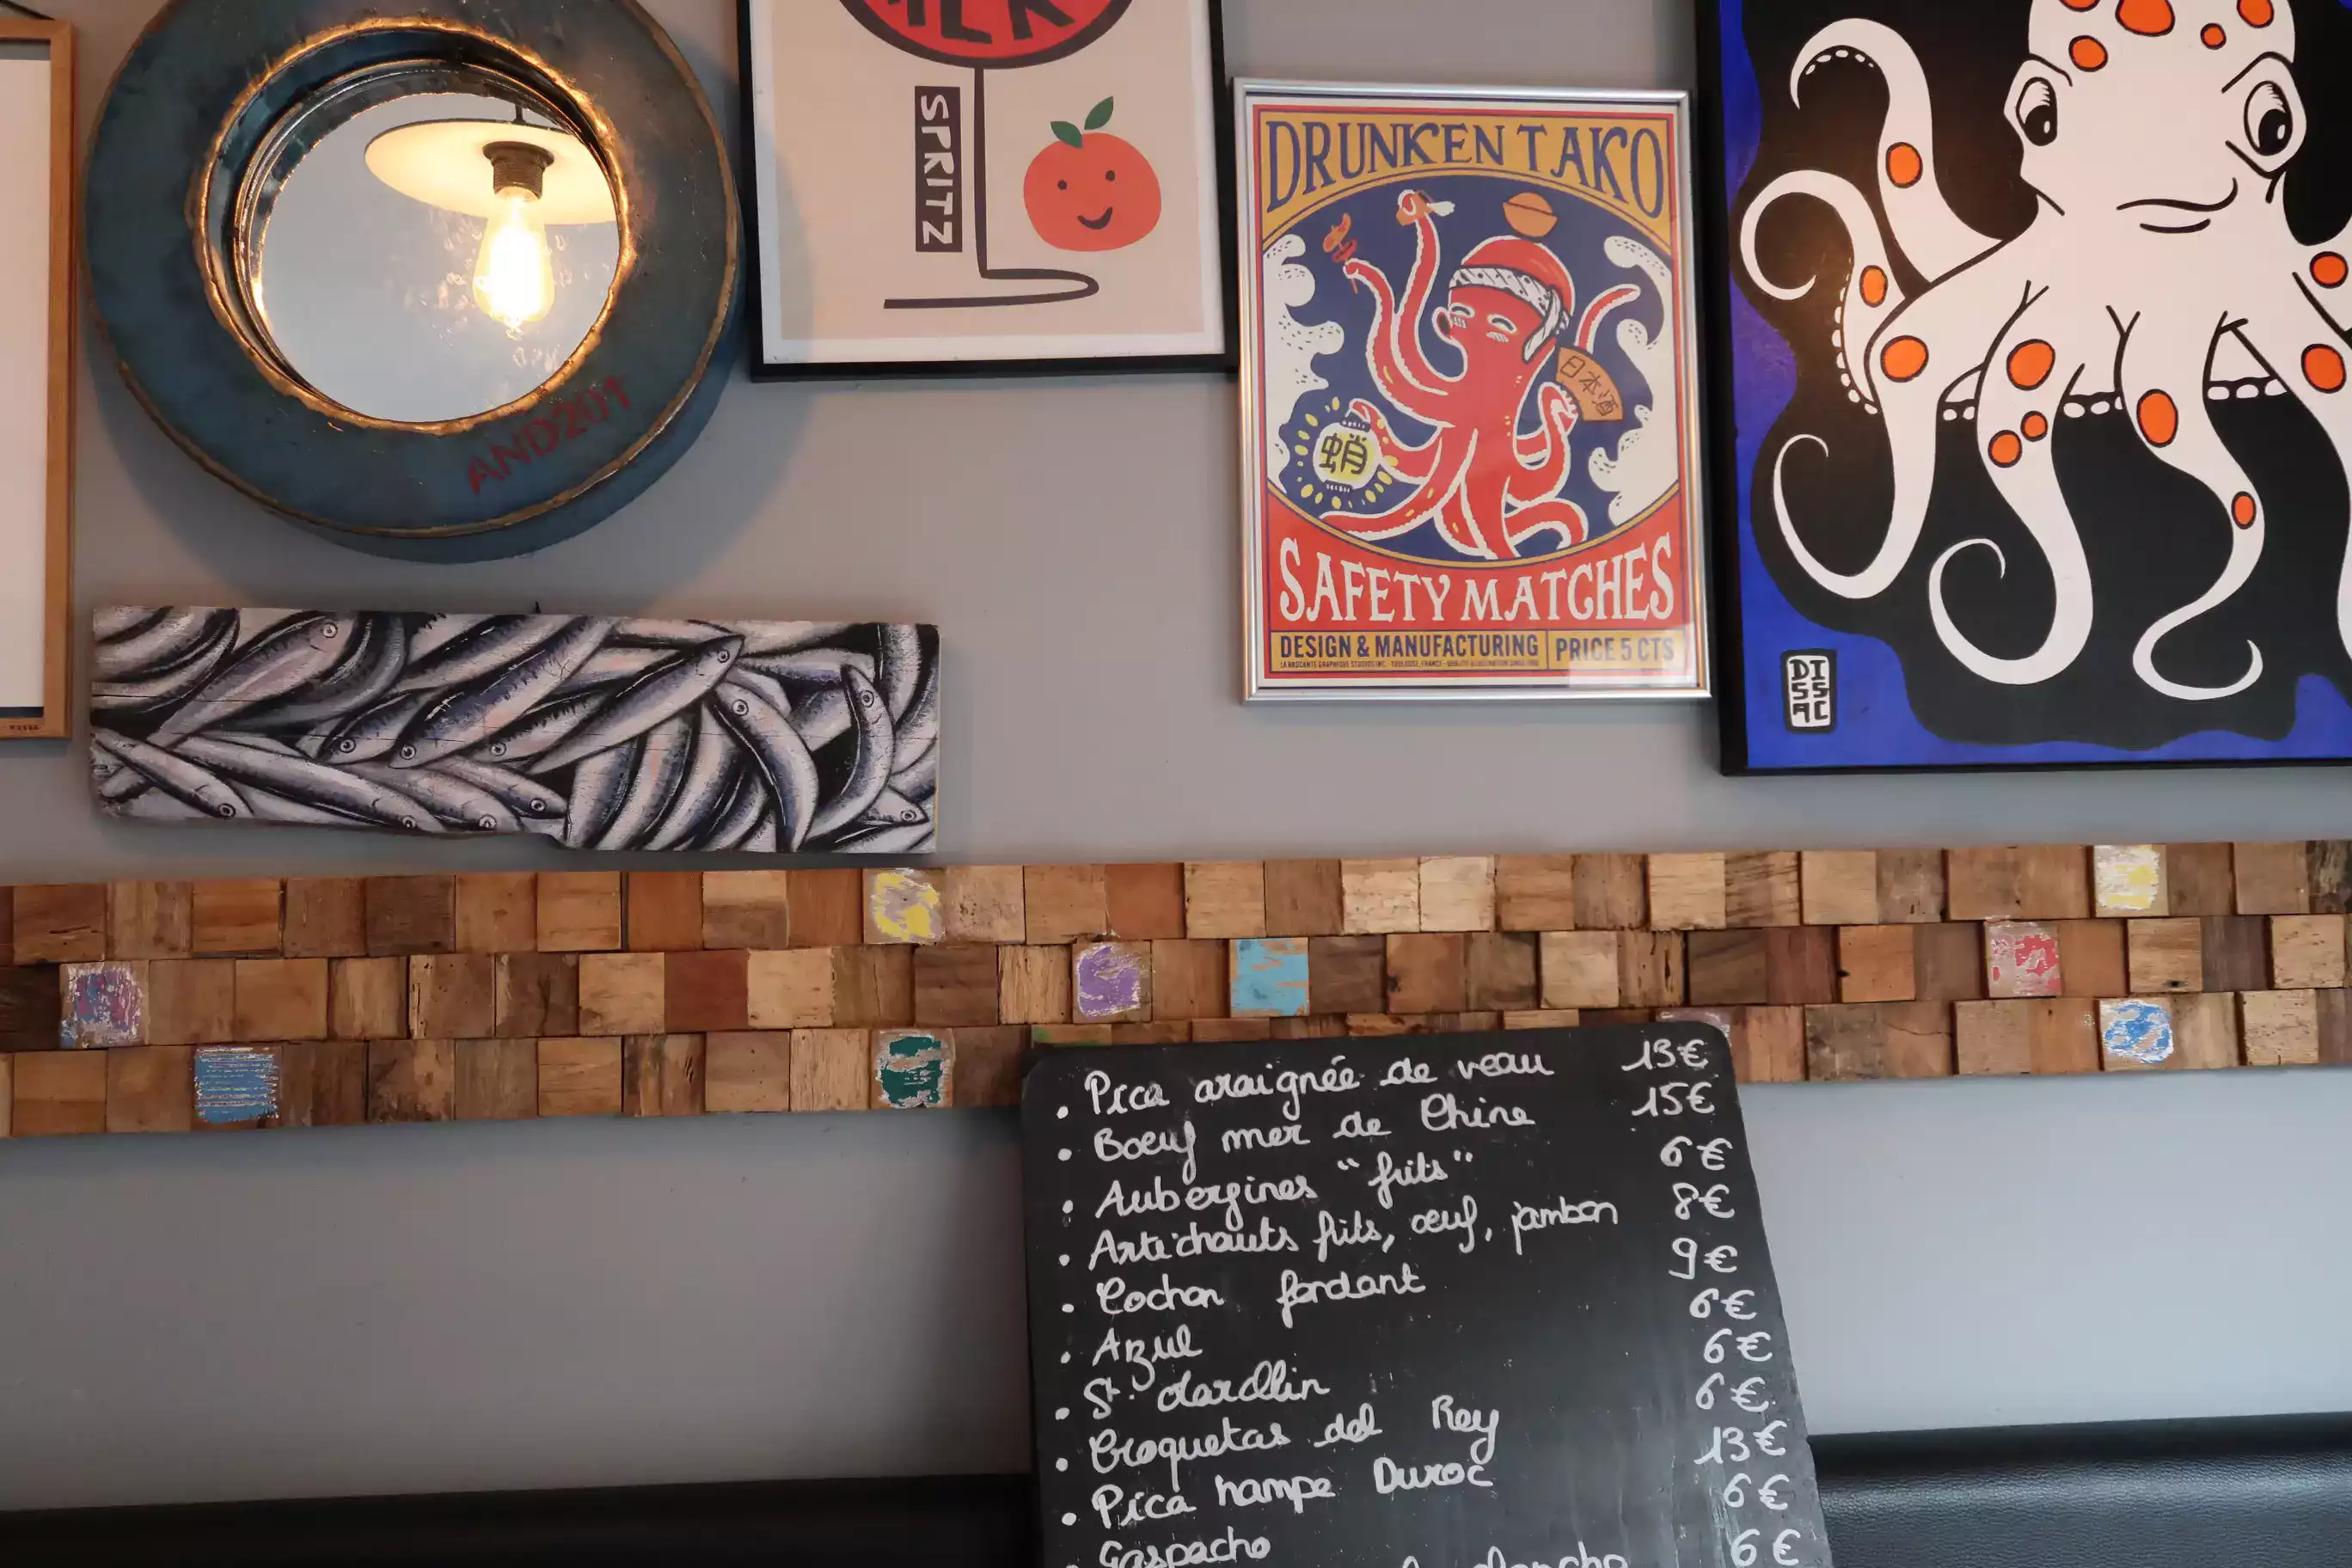 SPRITZ
AND201
DRUNKEN TAKO
日本酒
蛸
SAFETY MATCHES
DESIGN & MANUFACTURING PRICE 5 CTS
LA BROCANTE GRAPHIQUE STUDIOS INC. TOULOUSE, FRANCE
DISSAC
• Pica araignée de veau 13€
• Boeuf mer de Chine 15€
• Aubergines "frits" 6€
• Artichauts frits, œuf, jambon 8€
• Cochon fondant 9€
• Azul 6€
• St. 6€
• Croquetas del Rey 6€
• Pica hampe Duroc 13€
• Gaspacho 6€
6€